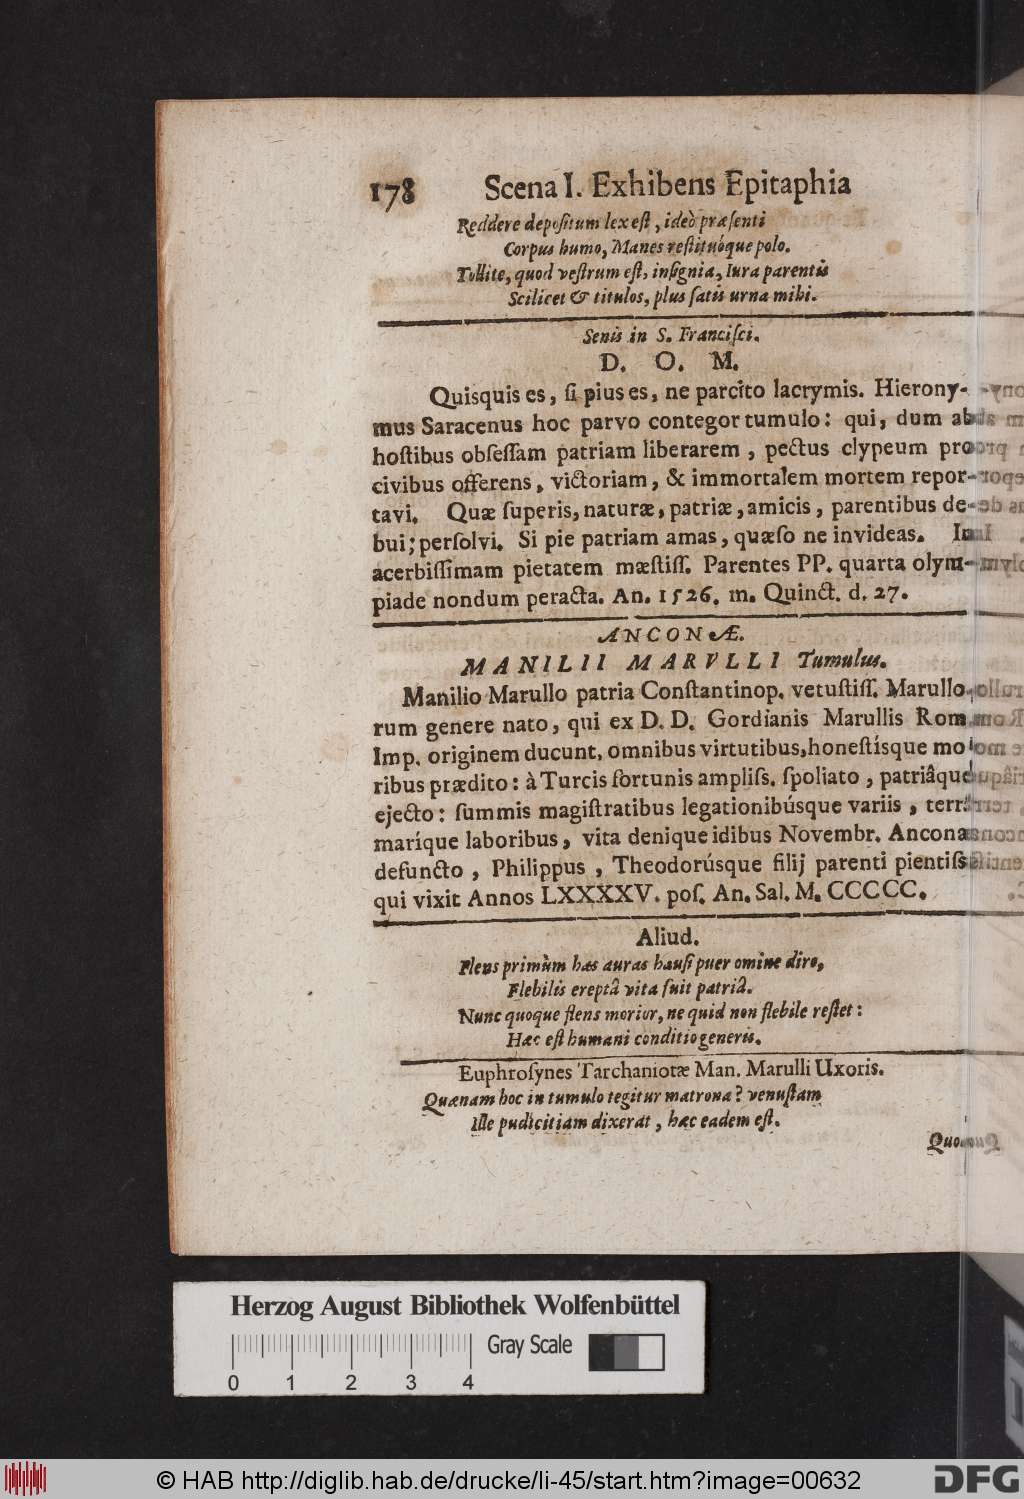 178 Scena I. Exhibens Epitaphia
Reddere depositum lex est, ideò præsenti
Corpus humo, Manes restituóque polo.
Tollite, quod vestrum est, insignia, Iura parentis
Scilicet & titulos, plus satis urna mihi.
Senis in S. Francisci.
D. O. M.
Quisquis es, si pius es, ne parcito lacrymis. Hierony-
mus Saracenus hoc parvo contegor tumulo: qui, dum ab
hostibus obsessam patriam liberarem, pectus clypeum pro
civibus offerens, victoriam, & immortalem mortem repor-
tavi. Quæ superis, naturæ, patriæ, amicis, parentibus de-
bui; persolvi. Si pie patriam amas, quæso ne invideas. In
acerbissimam pietatem mæstiss. Parentes PP. quarta olym-
piade nondum peracta. An. 1526. m. Quinct. d. 27.
ANCONÆ.
MANILII MARVLLI Tumulus.
Manilio Marullo patria Constantinop. vetustiss. Marullo-
rum genere nato, qui ex D. D. Gordianis Marullis Rom.
Imp. originem ducunt, omnibus virtutibus, honestísque mo
ribus prædito: à Turcis fortunis ampliss. spoliato, patriâque
ejecto: summis magistratibus legationibúsque variis, terrâ
maríque laboribus, vita denique idibus Novembr. Anconæ
defuncto, Philippus, Theodorúsque filij parenti pientiss
qui vixit Annos LXXXXV. pos. An. Sal. M. CCCCC.
Aliud.
Flens primùm has auras hausi puer omine diro,
Flebilis ereptâ vita fuit patriâ.
Nunc quoque flens morior, ne quid non flebile restet:
Hæc est humani conditio generis.
Euphrosynes Tarchaniotæ Man. Marulli Uxoris.
Quænam hoc in tumulo tegitur matrona? venustam
Ille pudicitiam dixerat, hæc eadem est.
Herzog August Bibliothek Wolfenbüttel
Gray Scale
0 1 2 3 4
© HAB http://diglib.hab.de/drucke/li-45/start.htm?image=00632
DFG